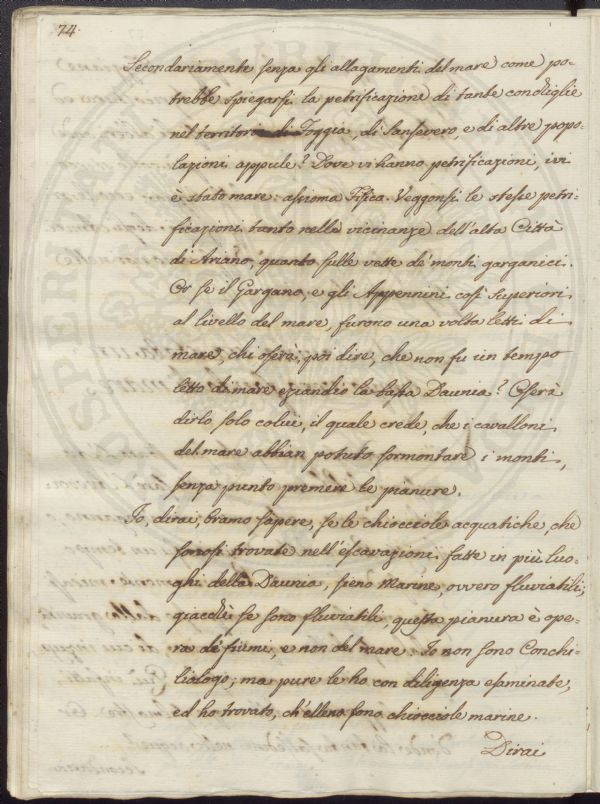 74.
Secondariamente senza gli allagamenti del mare come po-
trebbe spiegarsi la petrificazione di tante condiglie
nel territorio di Foggia, di Sansevero, e di altre popo-
lazioni appule? Dove vi hanno petrificazioni, ivi
è stato mare: assioma Fisica. Veggonsi le stesse petri-
ficazioni tanto nelle vicinanze dell'alta Città
di Ariano, quanto sulle vette de' monti garganici.
Or se il Gargano, e gli Appennini così superiori
al livello del mare, furono una volta letti di
mare, chi oserà poi dire, che non fu un tempo
letto di mare eziandio la bassa Daunia? Oserà
dirlo solo colui, il quale crede, che i cavalloni
del mare abbian potuto sormontare i monti,
senza punto premere le pianure.
Io, dirai, bramo sapere, se le chiocciole acquatiche, che
sonosi trovate nell'escavazioni fatte in più luo-
ghi della Daunia, sieno marine, ovvero fluviatili;
giacchè se sono fluviatili, questa pianura è ope-
ra di fiumi, e non del mare. Io non sono Conchi-
liologo; ma pure le ho con diligenza esaminate,
ed ho trovato, ch'elleno sono chiocciole marine.
Dirai